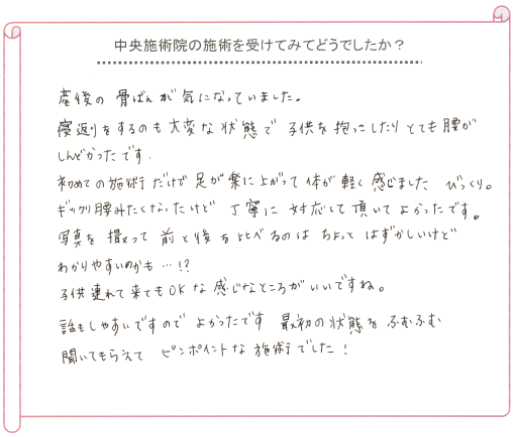 中央施術院の施術を受けてみてどうでしたか？
産後の骨ばんが気になっていました。
寝返りをするのも大変な状態で子供を抱っこしたりとても腰が
しんどかったです.
初めての施術だけで足が楽に上がって体が軽く感じました、びっくり。
ギックリ腰みたくなったけど丁寧に対応して頂いてよかったです。
写真を撮って前と後を比べるのはちょっとはずかしいけど
わかりやすいのかも…!?
子供連れて来てもOKな感じなところがいいですね。
話もしやすいですのでよかったです 最初の状態をふむふむ
聞いてもらえて ピンポイントな施術でした！